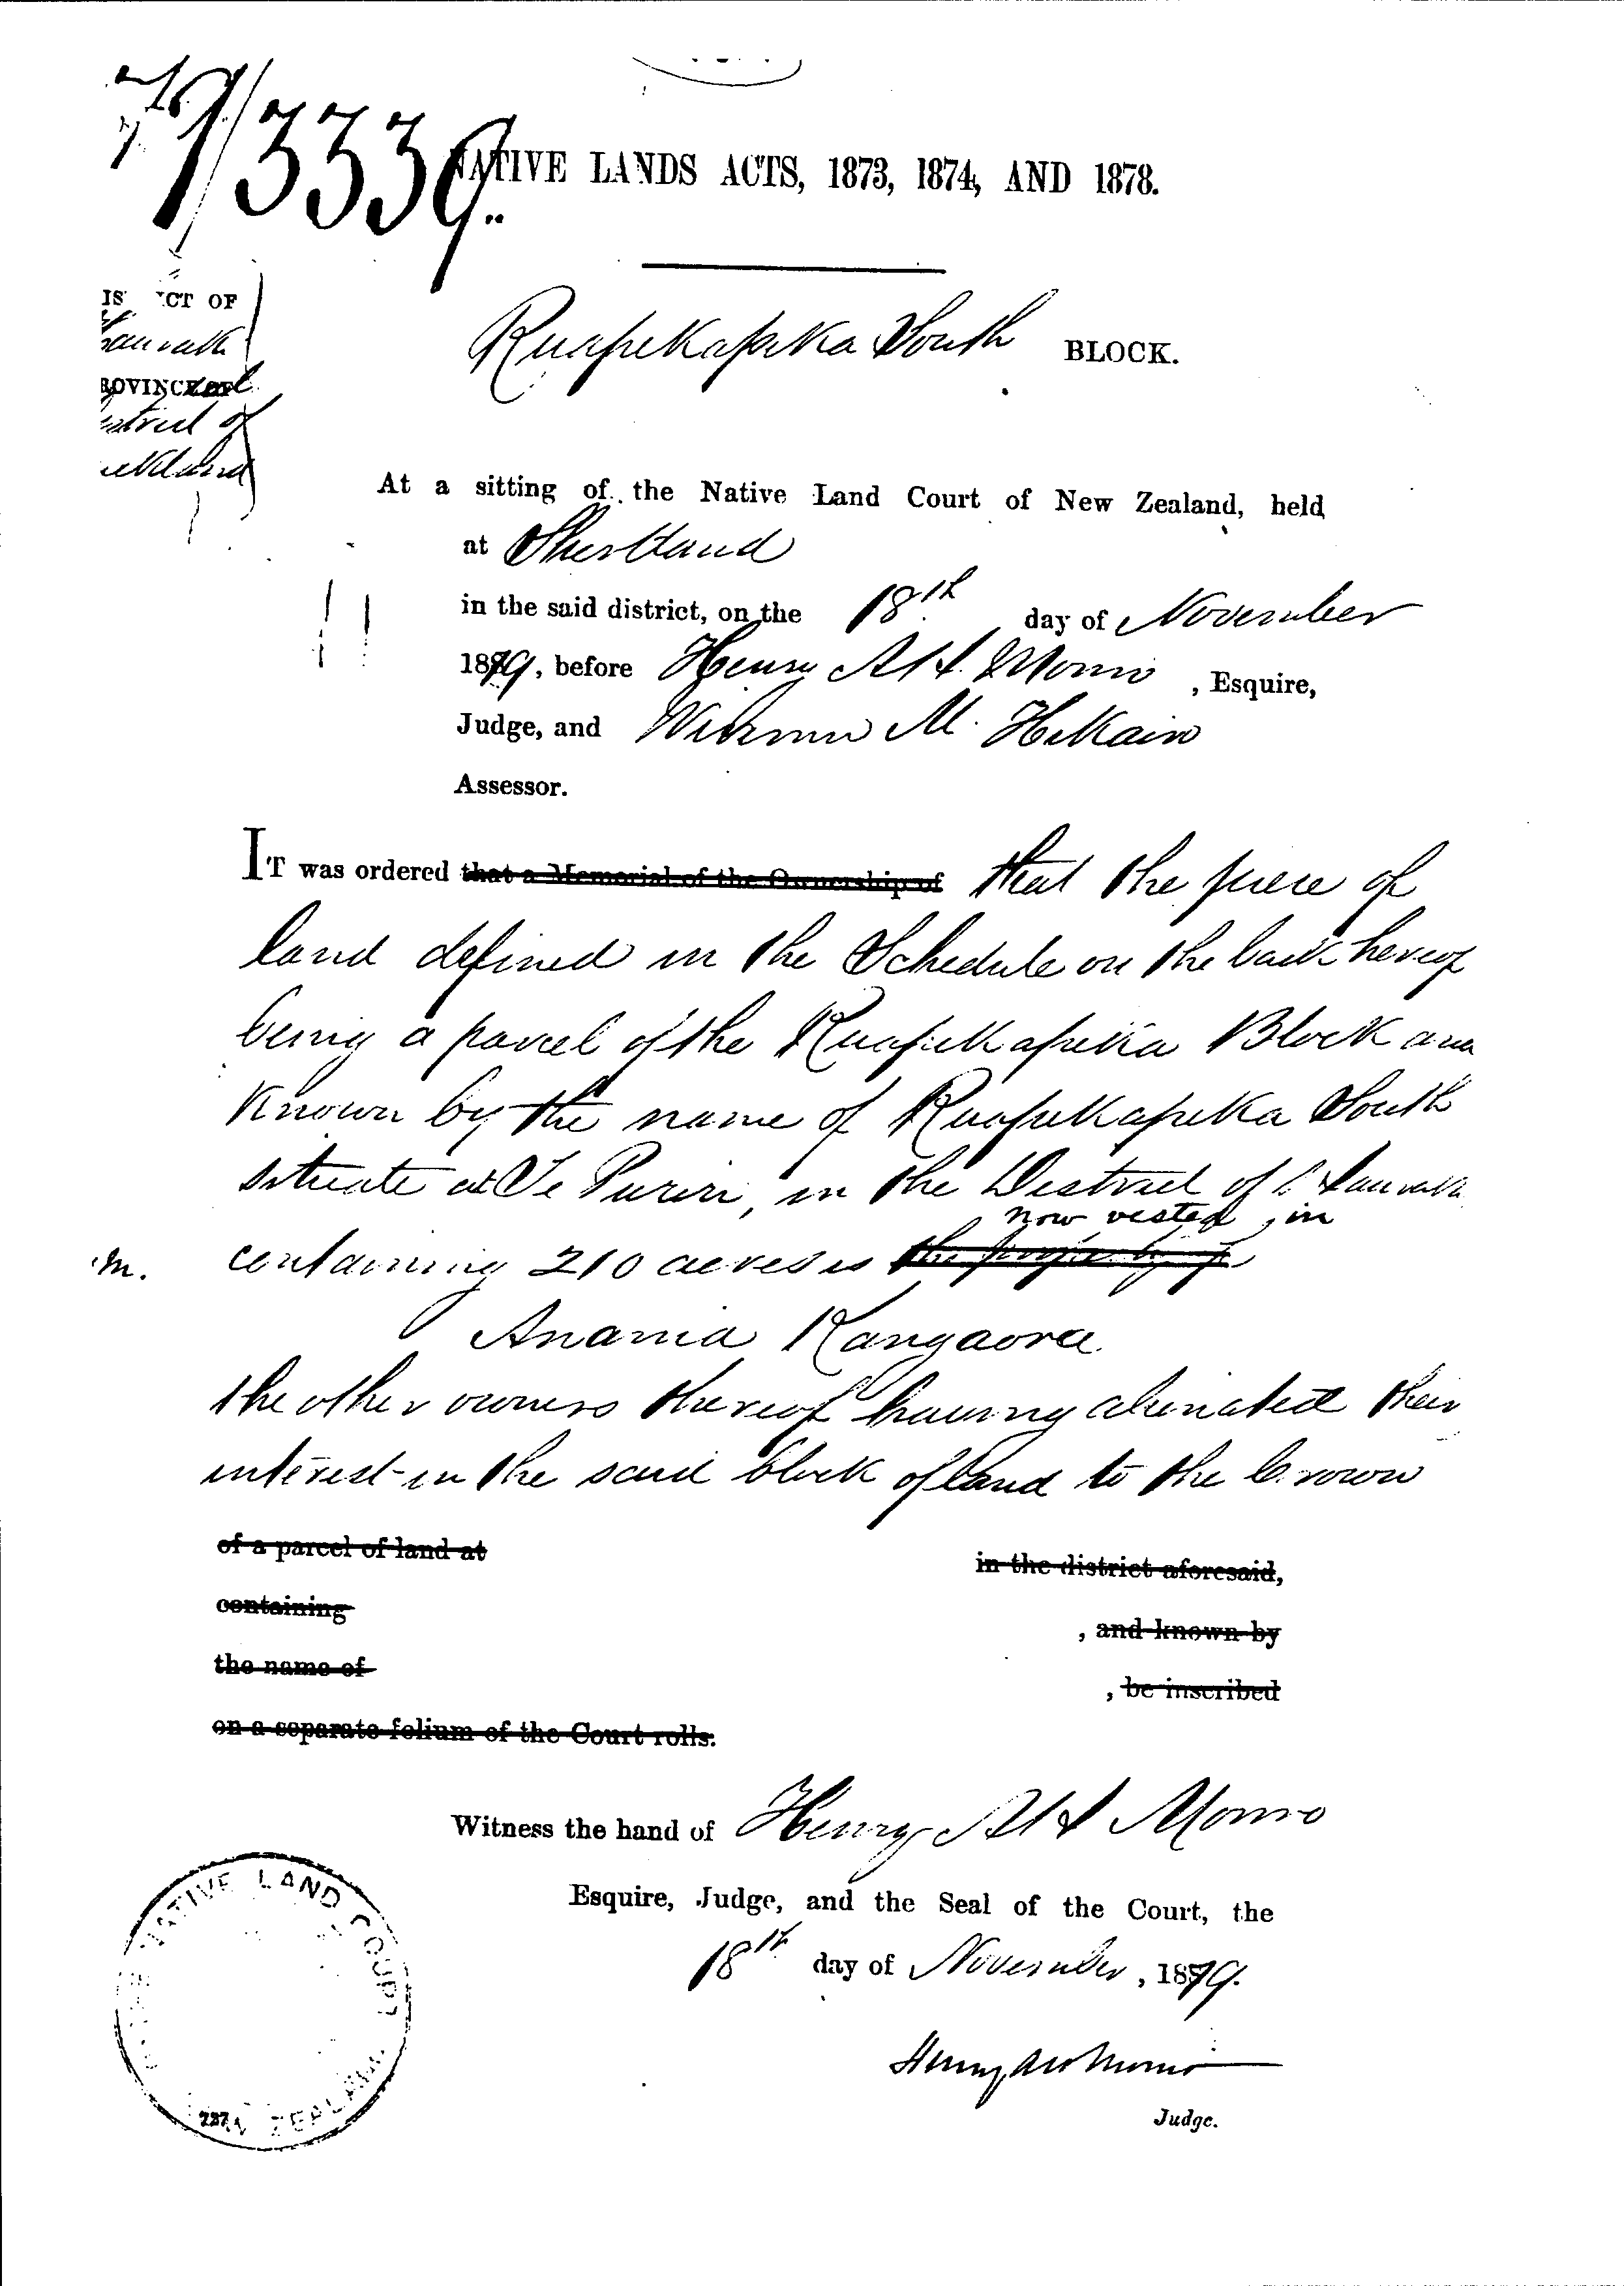 79/3339.
NATIVE LANDS ACTS, 1873, 1874, AND 1878.
IS ICT OF
auraki
ROVINCE OF
istrict of
uckland
Ruapekapeka South BLOCK.
At a sitting of the Native Land Court of New Zealand, held
at Shortland
in the said district, on the 18th day of November
1879, before Henry Alf. Monro, Esquire,
Judge, and M. Hikairo
Assessor.
IT was ordered that a Memorial of the Ownership of that the piece of
land defined in the Schedule on the back hereof
being a parcel of the Ruapekapeka Block and
Known by the name of Ruapekapeka South
situate at Te Puriri, in the District of Hauraki
now vested in
m. containing 210 acres is the property of
Anania Rangaora
the other owners thereof having alienated their
interest in the said block of land to the Crown
of a parcel of land at in the district aforesaid,
containing , and known by
the name of , be inscribed
on a separate folium of the Court rolls.
Witness the hand of Henry Alf Monro
Esquire, Judge, and the Seal of the Court, the
18th day of November, 1879.
NATIVE LAND COURT
NEW ZEALAND
227
Henry Alf Monro
Judge.